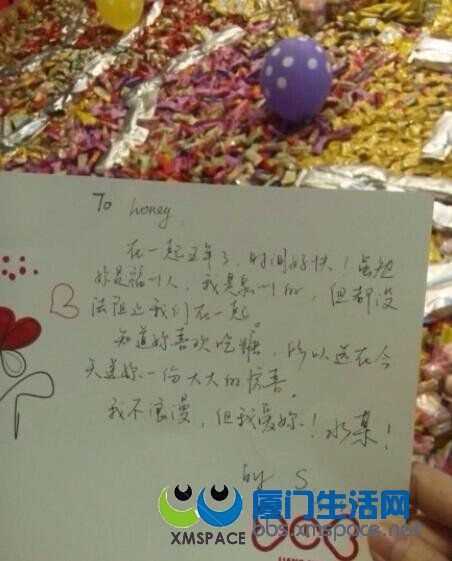 To honey.
在一起五年了,时间好快!虽然
妳是福州人,我是泉州的,但都没
法阻止我们在一起。
知道妳喜欢吃糖,所以送在今
天送妳一份大大的惊喜。
我不浪漫,但我爱妳!
by S
厦门生活网
XMSPACE
bbs.xmspace.net